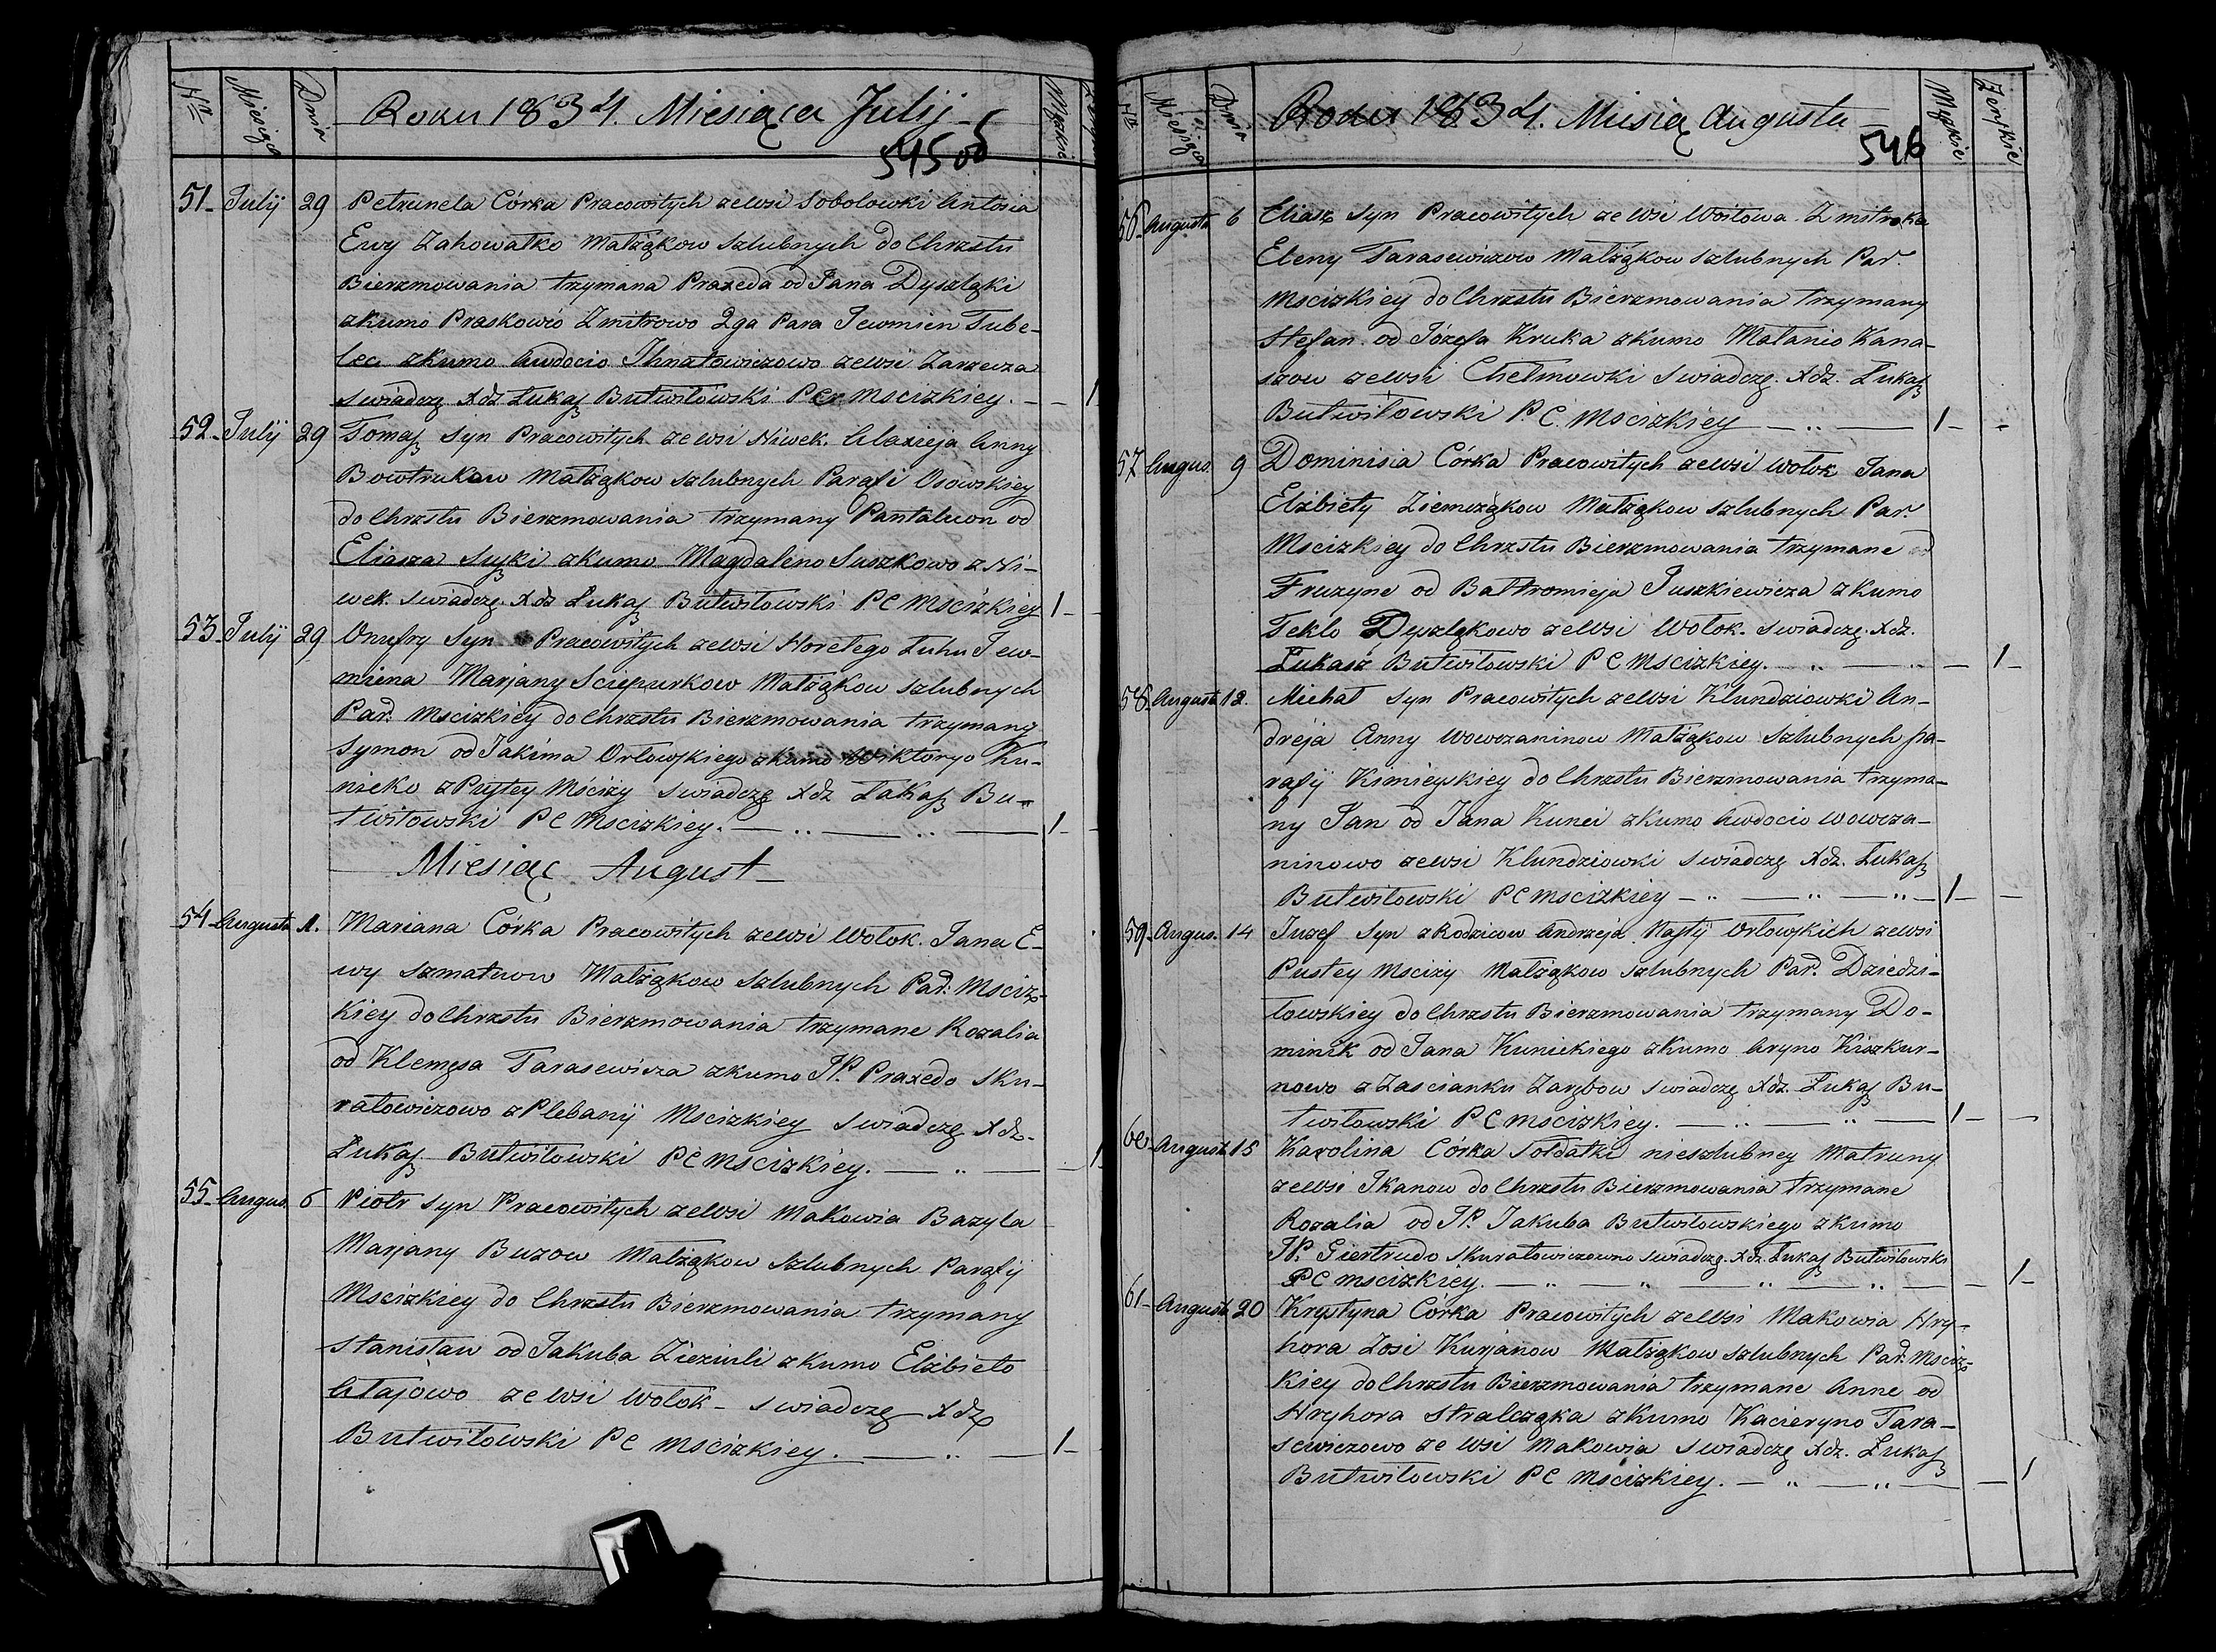 Nro Miesiąca Dnia Roku 1834. Miesiąca Julij Męzkie
545
51 Julij 29 Petrunela Córka Pracowitych ze Wsi Sobolowki Antosia
Ewy Zahowalko Małżąkow szlubnych do Chrzstu
Bierzmowania trzymana Praxeda od Jana Dyszląki
zkumo Praskowio Zmitrowo 2ga Para Jewmien Tube-
lec zkumo Awdocio Ihnatowiczowo ze Wsi Zarzecza
swiadczę Xdz Łukasz Butwiłowski PC Mscizkiey. 1
52 Julij 29 Tomasz syn Pracowitych ze wsi Niwek. Alaxieja Anny
Bowtrukow Małżąkow szlubnych Parafi Osowskiey
do Chrzstu Bierzmowania trzymany Pantaluon od
Eliasza Suyki zkumo Magdaleno Suszkowo z Ni-
wek. swiadczę. Xdz Łukasz Butwiłowski PC Mscizkiey 1
53 Julij 29 Onufry Syn Pracowitych ze wsi Horełego Łuhu Jew-
miena Marjany Sciepurkow Małżąkow szlubnych
Par. Mscizkiey do Chrzstu Bierzmowania trzymany
Symon od Jakima Orłowskiego zkumo Wiktoryo Ku-
nicko z Pustey Mściży swiadczę Xdz Łukasz Bu-
twiłowski PC Mscizkiey. 1
Miesiąc August
54 Augusta 1. Mariana Córka Pracowitych ze wsi Wolok. Jana E-
wy Szmatuow Małżąkow szlubnych Par. Msciz-
kiey do Chrzstu Bierzmowania trzymane Rozalia
od Klemęsa Tarasewicza zkumo JP. Praxedo Sku-
ratowiczowo z Plebanij Mscizkiey swiadczę Xdz.
Łukasz Butwiłowski PC Mscizkiey. 1
55 Augus. 6 Piotr syn Pracowitych ze Wsi Makowia Bazyla
Marjany Buzow Małżąkow szlubnych Parafij
Mscizkiey do Chrzstu Bierzmowania trzymany
Stanisław od Jakuba Zieziuli zkumo Elżbieto
Ałajowo ze wsi Wolok swiadczę Xdz
Butwiłowski PC Mscizkiey. 1
Nro Miesiąca Dnia Roku 1834. Miesiąc Augusta Męzkie Żeńskie
546
56 Augusta 6 Eliasz syn Pracowitych ze Wsi Woitowa Zmitroka
Eleny Tarasewiczow Małżąkow szlubnych Par.
Mscizkiey do Chrzstu Bierzmowania trzymany
Stefan. od Józefa Kruka zkumo Matanio Kana-
szow ze wsi Chełmowki swiadczę. Xdz. Łukasz
Butwiłowski P.C. Mscizkiey 1
57 Augus. 9 Dominisia Córka Pracowitych ze wsi Wolok Jana
Elżbiety Ziemcząkow Małżąkow szlubnych Par.
Mscizkiey do Chrzstu Bierzmowania trzymane
Fruzyne od Bałtromieja Juszkiewicza zkumo
Teklo Dyszląkowo ze Wsi Wolok. swiadczę. Xdz.
Łukasz Butwiłowski PC Mscizkiey. 1
58 Augusta 12. Michał syn Pracowitych ze Wsi Klundziowki An-
dreja Anny Wowczaninow Małżąkow szlubnych pa-
rafij Kimieyskiey do Chrzstu Bierzmowania trzyma-
ny Jan od Jana Kunci zkumo Awdocio Wowcza-
ninowo ze wsi Klundziowki swiadczę Xdz. Łukasz
Butwiłowski PC Mscizkiey 1
59 Augus. 14 Juzef syn z Rodzicow Andrzeja Nasty Orłowskich ze wsi
Pustey Msciży Małżąkow szlubnych Par. Dziedzi-
łowskiey do Chrzstu Bierzmowania trzymany Do-
minik od Jana Kunickiego zkumo Aryno Kiszkur-
nowo z Zascianku Zarębow swiadczę Xdz. Łukasz Bu-
twiłowski PC Mscizkiey. 1
60 August. 15 Karolina Córka Sołdatki nieszlubney Matruny
ze wsi Ikanow do Chrzstu Bierzmowania trzymane
Rozalia od JP. Jakuba Butwiłowskiego zkumo
JP. Giertrudo Skuratowiczowno swiadczę. Xdz. Łukasz Butwiłowski
PC Mscizkiey. 1
61 Augusta 20 Krystyna Córka Pracowitych ze Wsi Makowia Hry-
hora Zosi Kurjanow Małżąkow szlubnych Par. Msciz-
kiey do Chrzstu Bierzmowania trzymane Anne od
Hryhora Stralcząka zkumo Kacieryno Tara-
sewiczowo ze wsi Makowia swiadczę Xdz. Łukasz
Butwiłowski PC Mscizkiey. 1